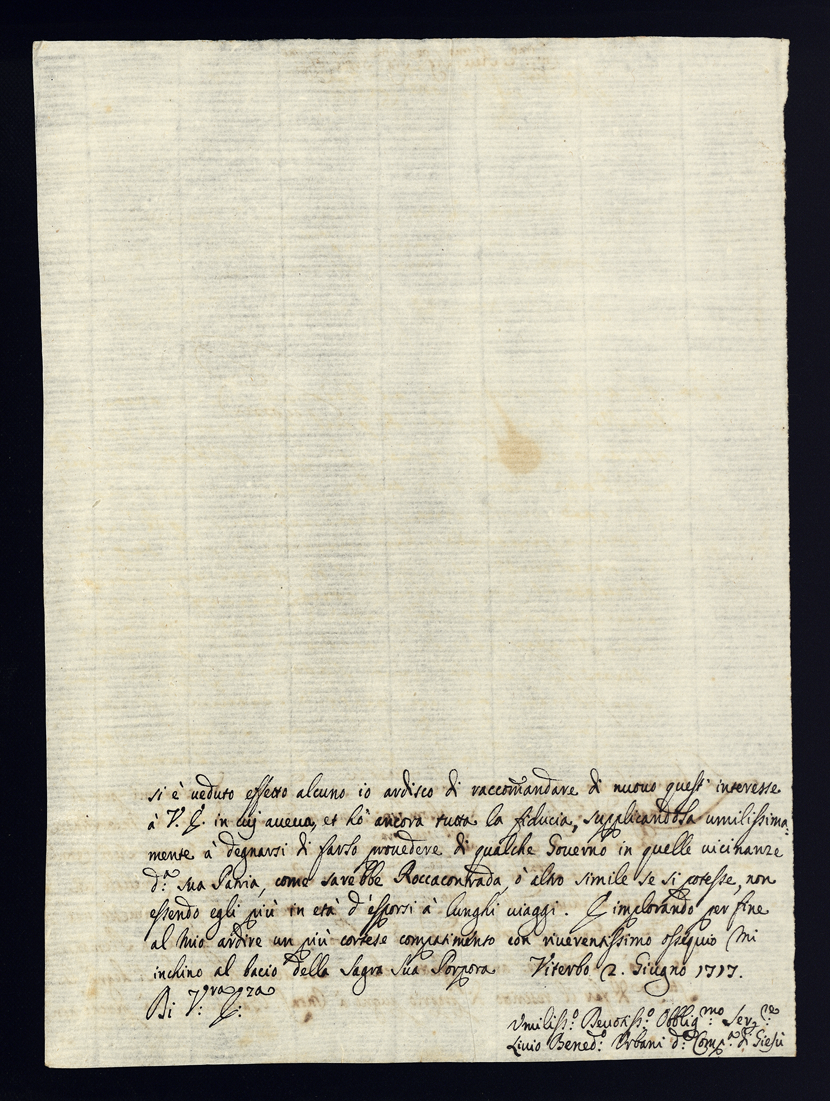 si è veduto effetto alcuno io ardisco di raccom̃andare di nuovo quest' interesse
à V. E. in cui aveva, et hò ancora tutta la fiducia, supplicandola umilissima-
mente à degnarsi di farlo provedere di qualche Governo in quelle vicinanze
d.ª sua Patria, come sarebbe Roccacontrada, ò altro simile se si potesse, non
essendo egli più in età d'esporsi à lunghi viaggi. E implorando per fine
al mio ardire un più cortese compatimento con riverentissimo ossequio mi
inchino al bacio della Sagra Sua Porpora Viterbo 2. Giugno 1717.
Di V.ra E.za
Umiliss.º Devotiss.º Obblig.mo Ser.re
Livio Bened.º Urbani d.ª Comp.ª di Giesù